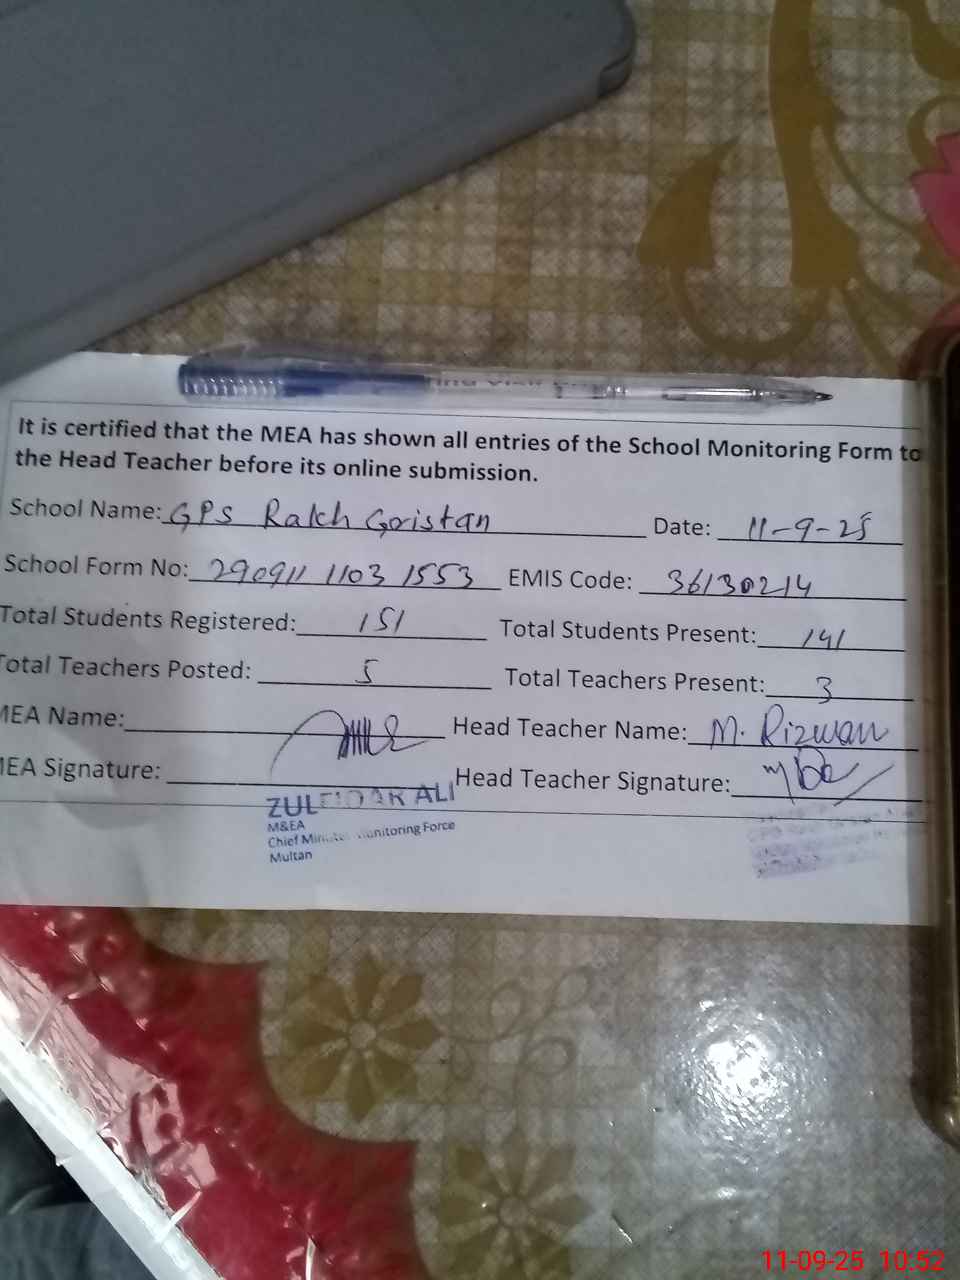 It is certified that the MEA has shown all entries of the School Monitoring Form to
the Head Teacher before its online submission.
School Name: GPS Rakh Goristan Date: 11-9-25
School Form No: 290911 1103 1553 EMIS Code: 36130214
Total Students Registered: 151 Total Students Present: 141
Total Teachers Posted: 5 Total Teachers Present: 3
MEA Name: Head Teacher Name: M. Rizwan
MEA Signature: Head Teacher Signature:
ZULFIQAR ALI
M&EA
Chief Minister Monitoring Force
Multan
11-09-25 10:52